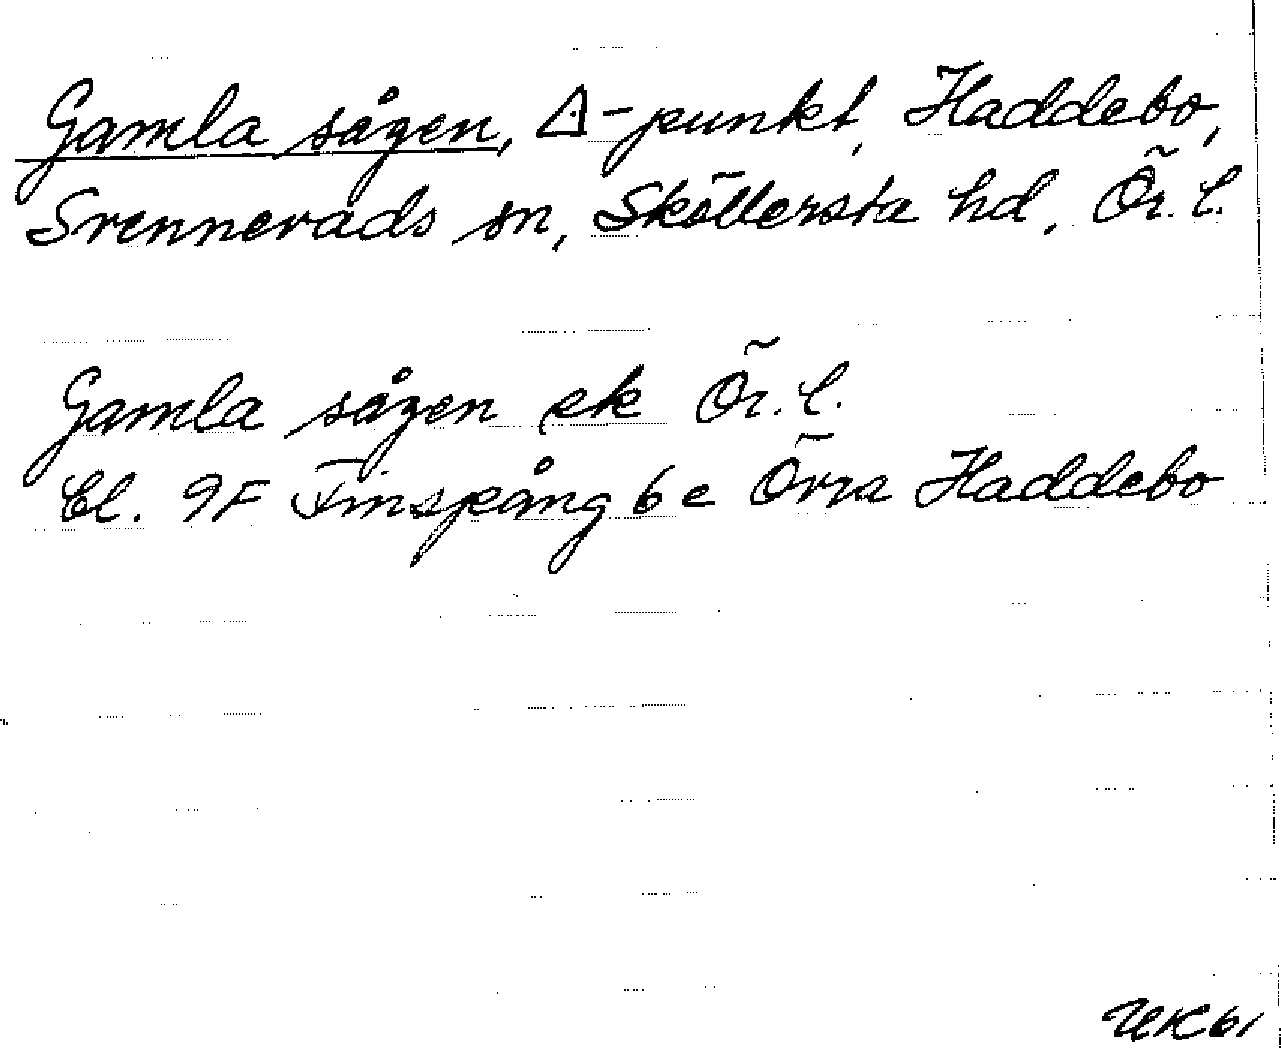 Gamla sågen, △-punkt, Haddebo,
Svennevads sn, Sköllersta hd, Ör. l.
Gamla sågen ek Ör. l.
Bl. 9F Finspång 6 e Övra Haddebo
UK61